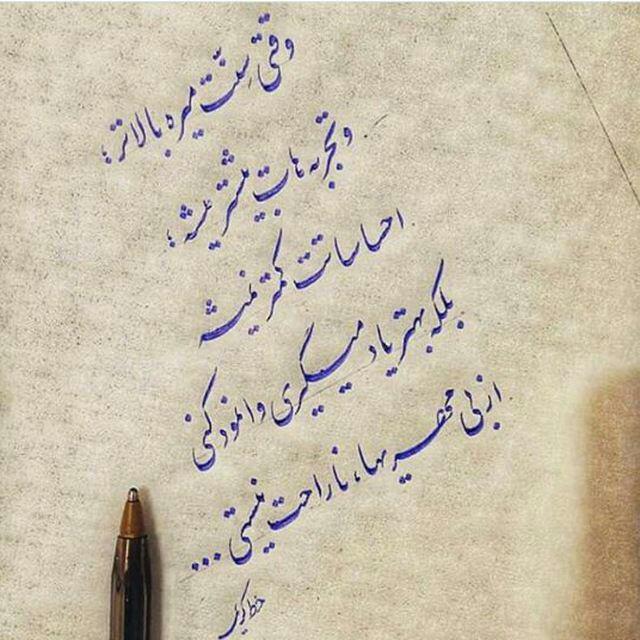 وقتی سِنّت میره بالاتر؛
و تجربه هات بیشتر میشه؛
احساساتت کمتر نمیشه
بلکه بهتر یاد میگیری وانمود کنی
از بی مهریها، ناراحت نیستی...